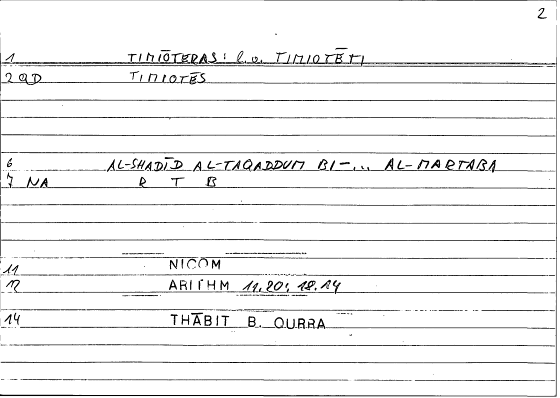 2
1 TIMIŌTERAS: l.o. TIMIOTĒTI
2 QD TIMIOTĒS
6 AL-SHADĪD AL-TAQADDUM BI-... AL-MARTABA
7 NA R T B
11 NICOM
12 ARITHM 11.20; 18.14
14 THĀBIT B. QURRA